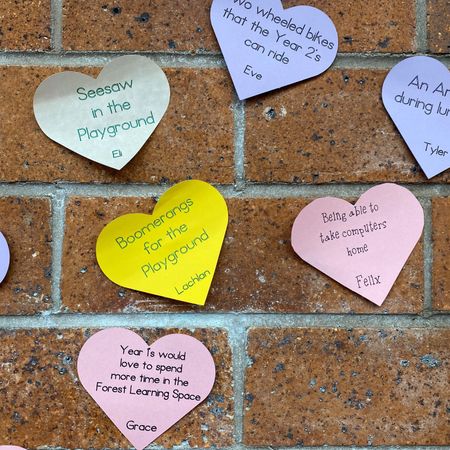 Seesaw
in the
Playground
Eli
wo wheeled bikes
that the Year 2's
can ride
Eve
An Ar
during lun
Tyler
Boomerangs
for the
Playground
Lachlan
Being able to
take computers
home
Felix
Year 1s would
love to spend
more time in the
Forest Learning Space
Grace